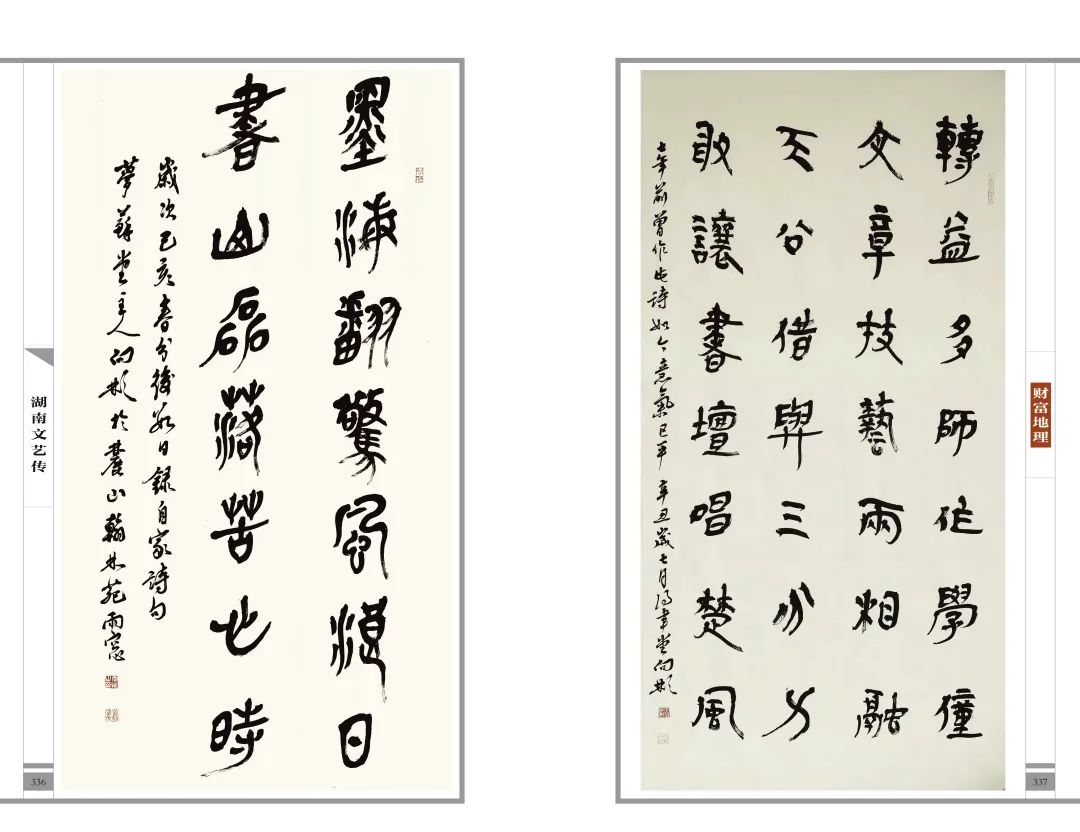 墨海翻驚風浪日
書山磊落苦時
歲次己亥春分後數日錄自家詩句
夢蘇堂主人向彬於麓山翰林苑雨窓
湖南文艺传
336
轉益多師作學僮
文章技藝兩相融
天公借與三分力
敢讓書壇唱楚風
七年前曾作此詩如今意氣已平 辛丑歲七月堂向彬
财富地理
337